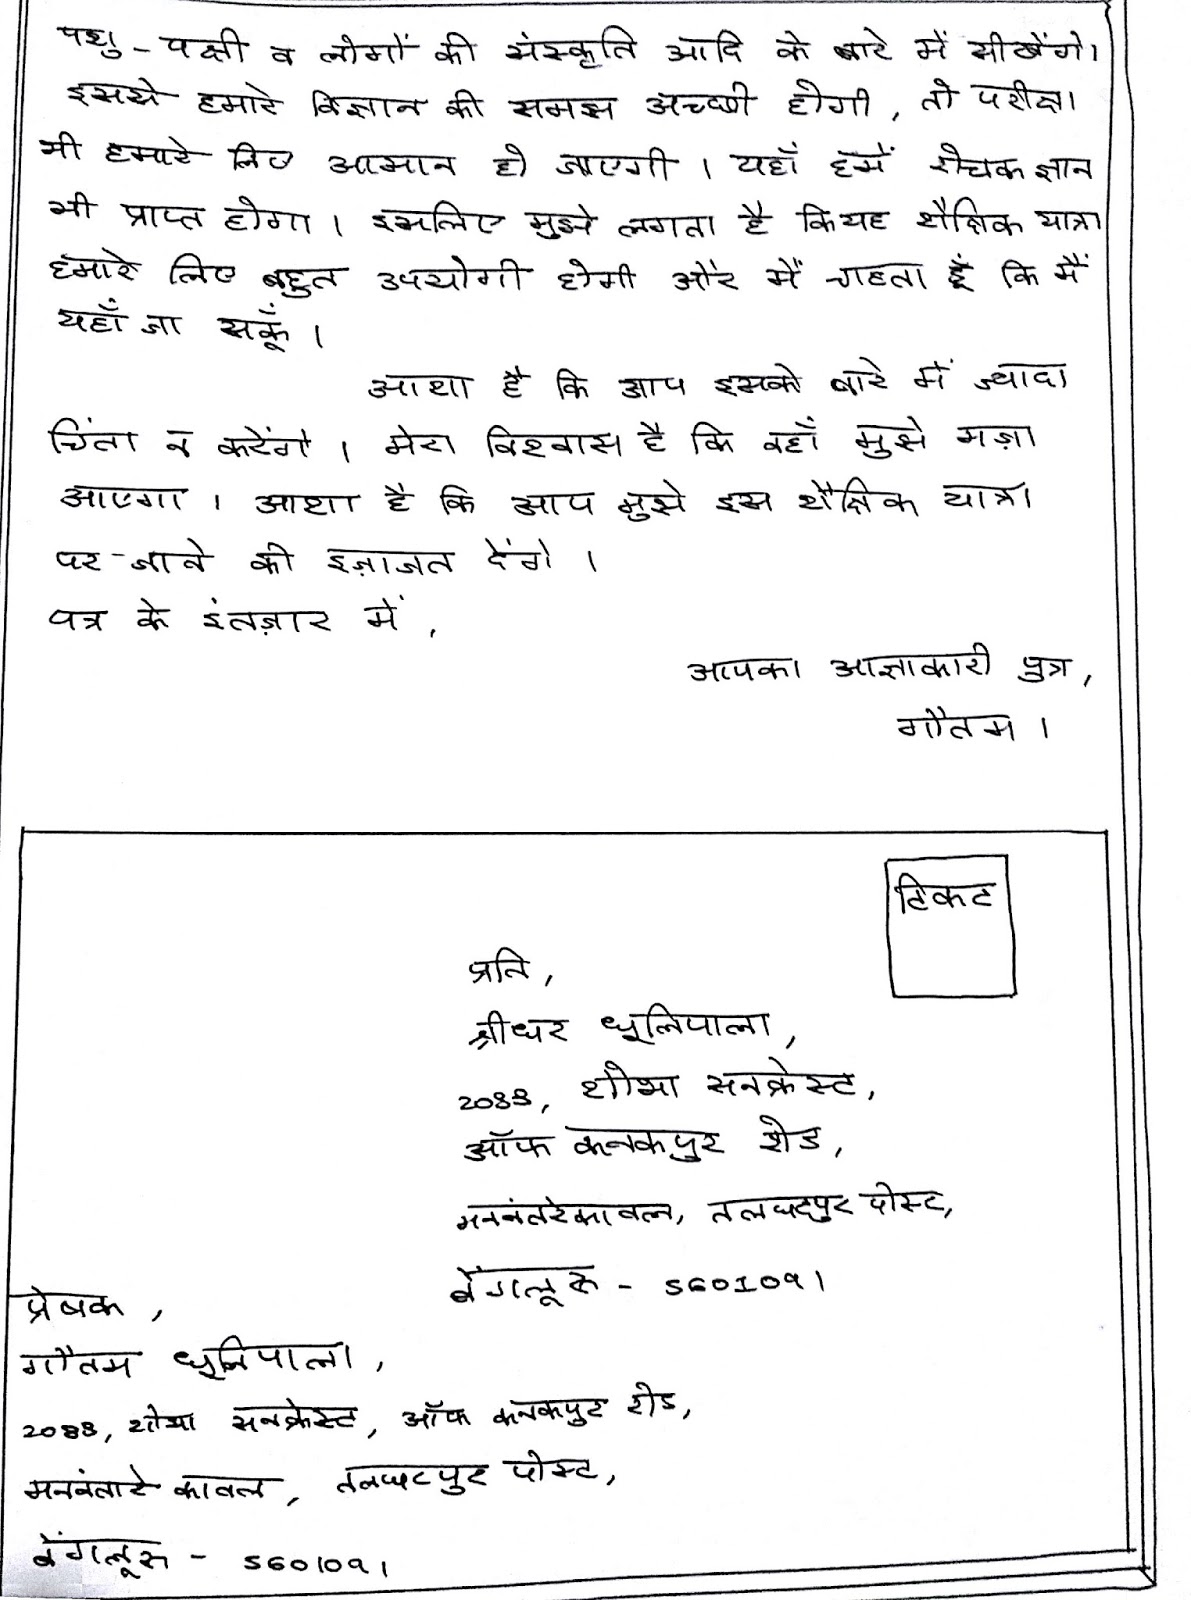 पशु - पक्षी व लोगों की संस्कृति आदि के बारे में सीखेंगे।
इससे हमारे विज्ञान की समझ अच्छी होगी, तो परीक्षा
भी हमारे लिए आसान हो जाएगी । यहाँ हमें रोचक ज्ञान
भी प्राप्त होगा । इसलिए मुझे लगता है कि यह शैक्षिक यात्रा
हमारे लिए बहुत उपयोगी होगी और में चाहता हूँ कि मैं
यहाँ जा सकूँ ।
आशा है कि आप इसके बारे में ज्यादा
चिंता न करेंगे । मेरा विश्वास है कि वहाँ मुझे मज़ा
आएगा । आशा है कि आप मुझे इस शैक्षिक यात्रा
पर जाने की इज़ाजत देंगे ।
पत्र के इंतज़ार में ,
आपका आज्ञाकारी पुत्र,
गौतम ।
टिकट
प्रति ,
श्रीधर धूलिपाला ,
2088, शोभा सनक्रेस्ट,
ऑफ कनकपुर रोड ,
तलघटपुर पोस्ट,
बेंगलूरु - 5601091
प्रेषक ,
गौतम धूलिपाला ,
2088, शोभा सनक्रेस्ट, ऑफ कनकपुर रोड,
कावल , तलघटपुर पोस्ट,
बेंगलूरु - 5601091